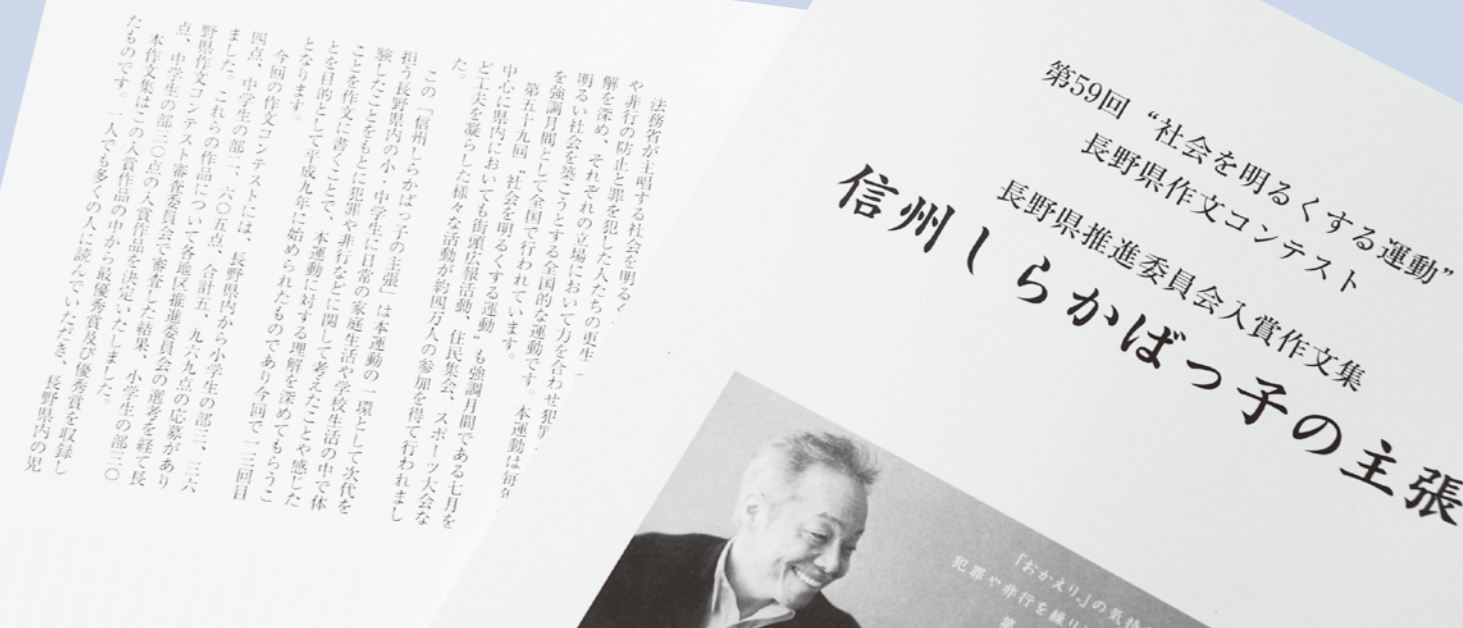 第59回 “社会を明るくする運動”
長野県作文コンテスト
長野県推進委員会入賞作文集
信州しらかばっ子の主張
「おかえり。」の気持
犯罪や非行を繰り
第
法務省が主唱する社会を明るく
や非行の防止と罪を犯した人たちの更生
解を深め、それぞれの立場において力を合わせ犯罪
明るい社会を築こうとする全国的な運動です。本運動は毎年
を強調月間として全国で行われています。
第五十九回〝社会を明るくする運動〟も強調月間である七月を
中心に県内においても街頭広報活動、住民集会、スポーツ大会な
ど工夫を凝らした様々な活動が約四万人の参加を得て行われまし
た。
この「信州しらかばっ子の主張」は本運動の一環として次代を
担う長野県内の小・中学生に日常の家庭生活や学校生活の中で体
験したことをもとに犯罪や非行などに関して考えたことや感じた
ことを作文に書くことで、本運動に対する理解を深めてもらうこ
とを目的として平成九年に始められたものであり今回で一三回目
となります。
今回の作文コンテストには、長野県内から小学生の部三、三六
四点、中学生の部二、六〇五点、合計五、九六九点の応募があり
ました。これらの作品について各地区推進委員会の選考を経て長
野県作文コンテスト審査委員会で審査した結果、小学生の部三〇
点、中学生の部三〇点の入賞作品を決定いたしました。
本作文集はこの入賞作品の中から最優秀賞及び優秀賞を収録し
たものです。一人でも多くの人に読んでいただき、長野県内の児